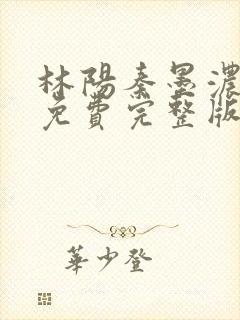 林陽秦墨濃
免費完整版
華少登